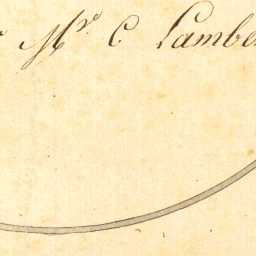 Mrs C Lambe